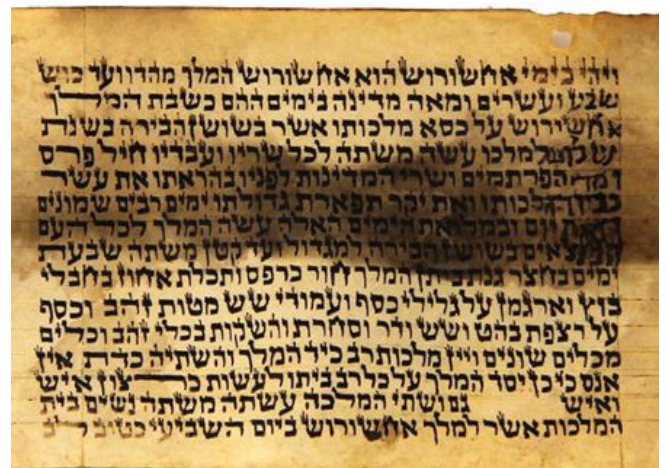 ויהי בימי אחשורוש הוא אחשורוש המלך מהדו ועד כוש
שבע ועשרים ומאה מדינה בימים ההם כשבת המלך
אחשורוש על כסא מלכותו אשר בשושן הבירה בשנת
שלוש למלכו עשה משתה לכל שריו ועבדיו חיל פרס
ומדי הפרתמים ושרי המדינות לפניו בהראתו את עשר
כבוד מלכותו ואת יקר תפארת גדולתו ימים רבים שמונים
ומאת יום ובמלואת הימים האלה עשה המלך לכל העם
הנמצאים בשושן הבירה למגדול ועד קטן משתה שבעת
ימים בחצר גנת ביתן המלך חור כרפס ותכלת אחוז בחבלי
בוץ וארגמן על גלילי כסף ועמודי שש מטות זהב וכסף
על רצפת בהט ושש ודר וסחרת והשקות בכלי זהב וכלים
מכלים שונים ויין מלכות רב כיד המלך והשתיה כדת אין
אנס כי כן יסד המלך על כל רב ביתו לעשות כרצון איש
ואיש גם ושתי המלכה עשתה משתה נשים בית
המלכות אשר למלך אחשורוש ביום השביעי כטוב לב